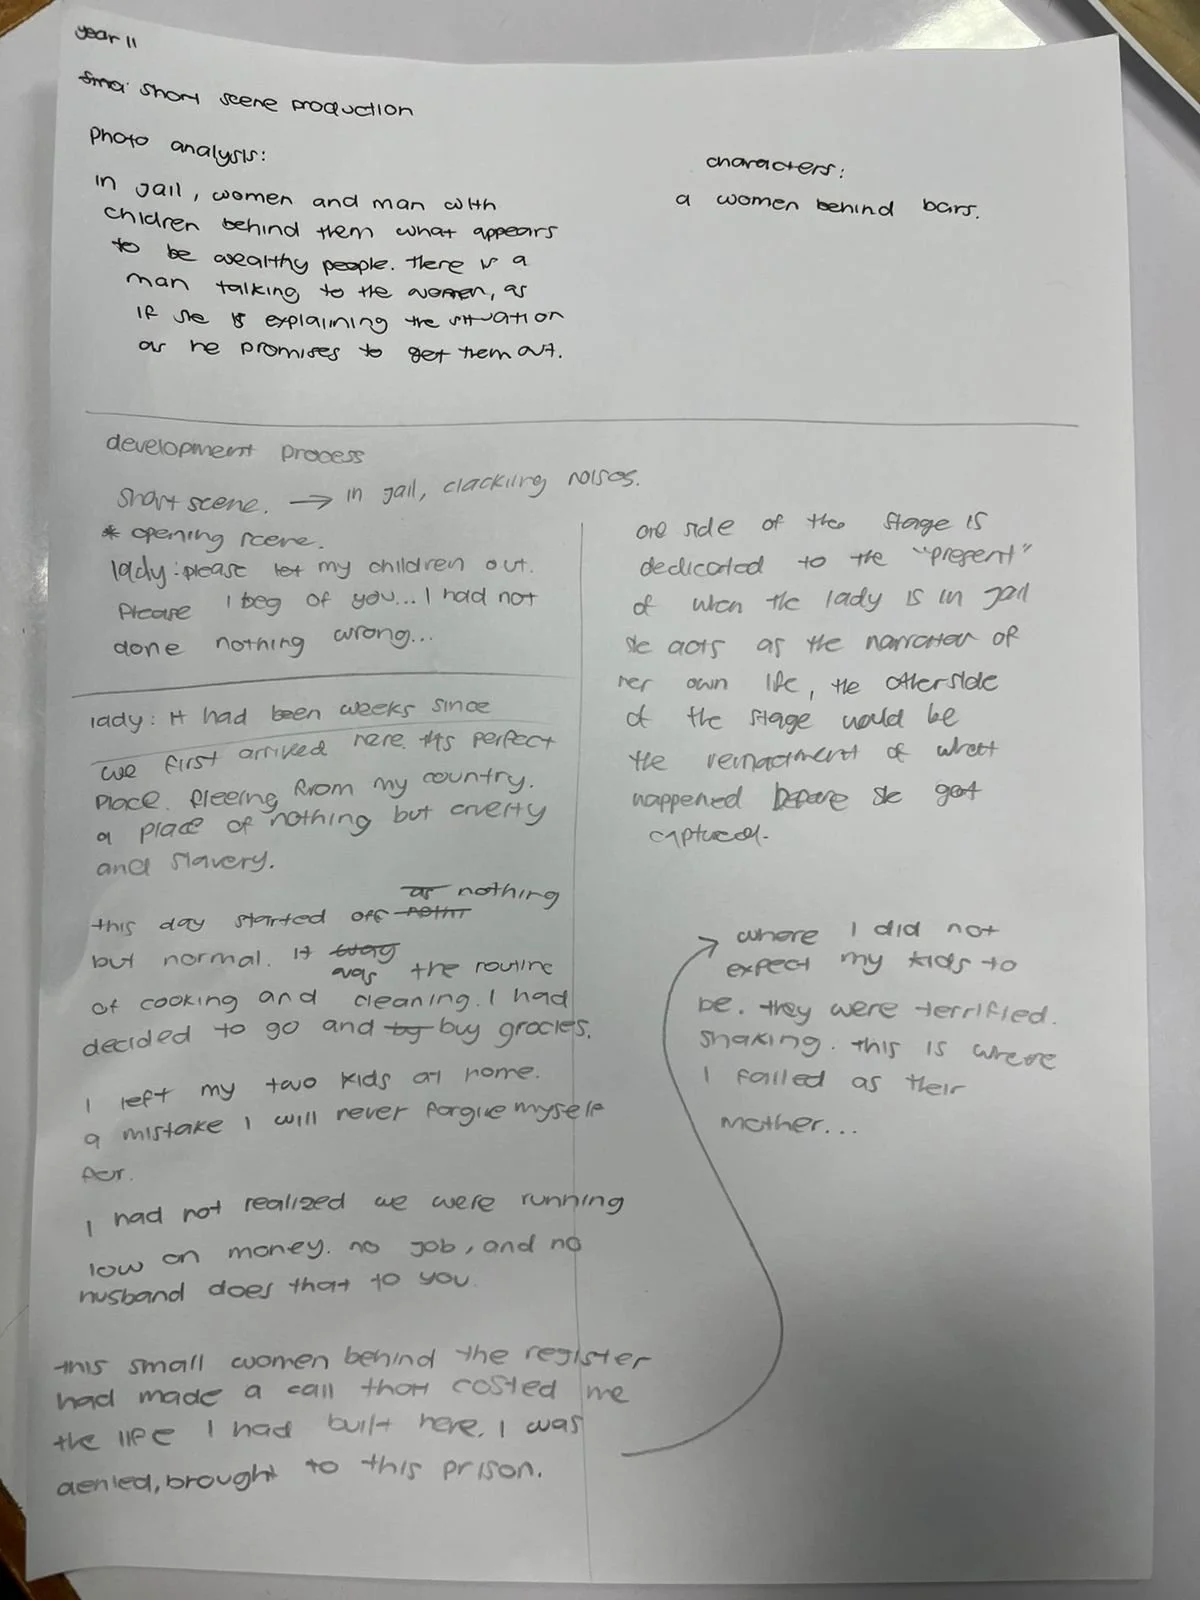 year 11
short scene production
Photo analysis:
in jail, women and man with
children behind them what appears
to be wealthy people. there is a
man talking to the women, as
if she is explaining the situation
as he promises to get them out.
characters:
a women behind bars.
development process
short scene. → in jail, clackling noises.
* opening scene.
lady: please let my children out.
Please I beg of you... I had not
done nothing wrong...
one side of the stage is
dedicated to the "present"
of when the lady is in jail
she acts as the narrator of
her own life, the otherside
of the stage would be
the reinactment of what
happened before she got
captured.
lady: It had been weeks since
we first arrived here. this perfect
place. fleeing from my country.
a place of nothing but cruelty
and slavery.
this day started off as nothing
but normal. it was the routine
of cooking and cleaning. I had
decided to go and by buy grocies.
I left my two kids at home.
a mistake I will never forgive myself
for.
I had not realized we were running
low on money. no job, and no
husband does that to you.
this small women behind the register
had made a call that costed me
the life I had built here. I was
denied, brought to this prison.
→ where I did not
expect my kids to
be. they were terrified.
shaking. this is where
I failed as their
mother...